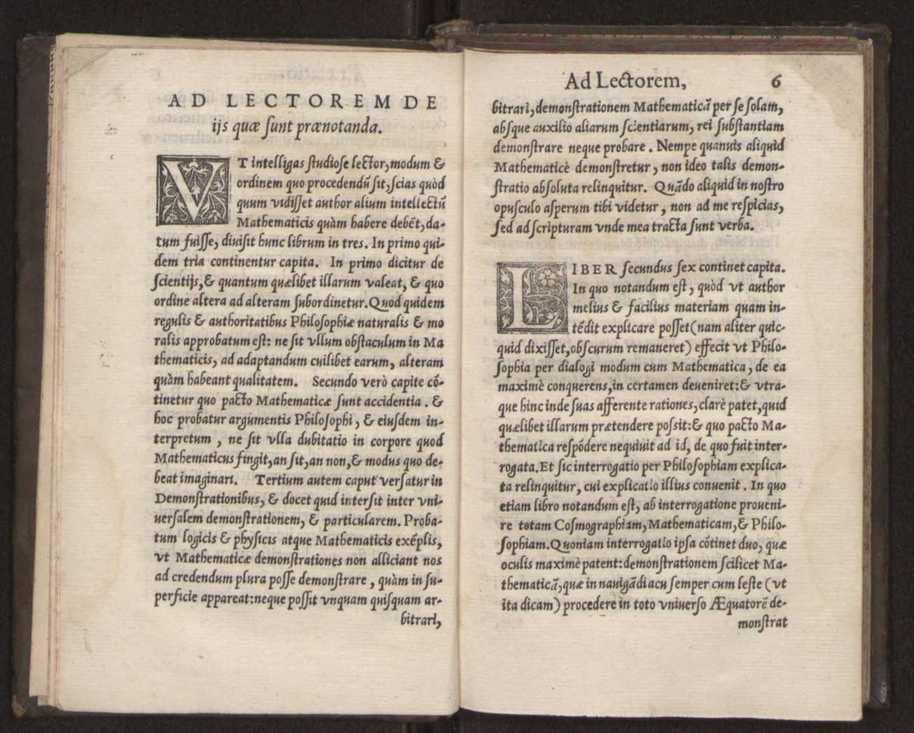 AD LECTOREM DE
ijs quæ sunt prænotanda.
VT intelligas studiose lector, modum &
ordinem quo procedendũ sit, scias quòd
quum vidisset author alium intellectũ
Mathematicis quàm habere debẽt, da-
tum fuisse, diuisit hunc librum in tres. In primo qui-
dem tria continentur capita. In primo dicitur de
scientijs, & quantum quælibet illarum valeat, & quo
ordine altera ad alteram subordinetur. Quod quidem
regulis & authoritatibus Philosophiæ naturalis & mo
ralis approbatum est: ne sit vllum obstaculum in Ma
thematicis, ad adaptandum cuilibet earum, alteram
quàm habeant qualitatem. Secundo verò capite cõ-
tinetur quo pacto Mathematicæ sunt accidentia. &
hoc probatur argumentis Philosophi, & eiusdem in-
terpretum, ne sit vlla dubitatio in corpore quod
Mathematicus fingit, an sit, an non, & modus quo de-
beat imaginari. Tertium autem caput versatur in
Demonstrationibus, & docet quid intersit inter vni-
uersalem demonstrationem, & particularem. Proba-
tum logicis & physicis atque Mathematicis exẽplis,
vt Mathematicæ demonstrationes non alliciant nos
ad credendum plura posse demonstrare, quàm in su-
perficie appareat: neque possit vnquam quisquam ar-
bitrari,
Ad Lectorem, 6
bitrari, demonstrationem Mathematicã per se solam,
absque auxilio aliarum scientiarum, rei substantiam
demonstrare neque probare. Nempe quamuis aliquid
Mathematicè demonstretur, non ideo talis demon-
stratio absoluta relinquitur. Quãdo aliquid in nostro
opusculo asperum tibi videtur, non ad me respicias,
sed ad scripturam vnde mea tracta sunt verba.
LIBER secundus sex continet capita.
In quo notandum est, quòd vt author
melius & facilius materiam quam in-
tẽdit explicare posset (nam aliter quic-
quid dixisset, obscurum remaneret) effecit vt Philo-
sophia per dialogi modum cum Mathematica, de ea
maximè conquerens, in certamen deueniret: & vtra-
que hinc inde suas afferente rationes, clarè patet, quid
quælibet illarum prætendere possit: & quo pacto Ma-
thematica respõdere nequiuit ad id, de quo fuit inter-
rogata. Et sic interrogatio per Philosophiam explica-
ta relinquitur, cui explicatio illius conuenit. In quo
etiam libro notandum est, ab interrogatione proueni-
re totam Cosmographiam, Mathematicam, & Philo-
sophiam. Quoniam interrogatio ipsa cõtinet duo, quæ
oculis maximè patent: demonstrationem scilicet Ma-
thematicã, quæ in nauigãdi acu semper cum leste (vt
ita dicam) procedere in toto vniuerso Æquatorẽ de-
monstrat